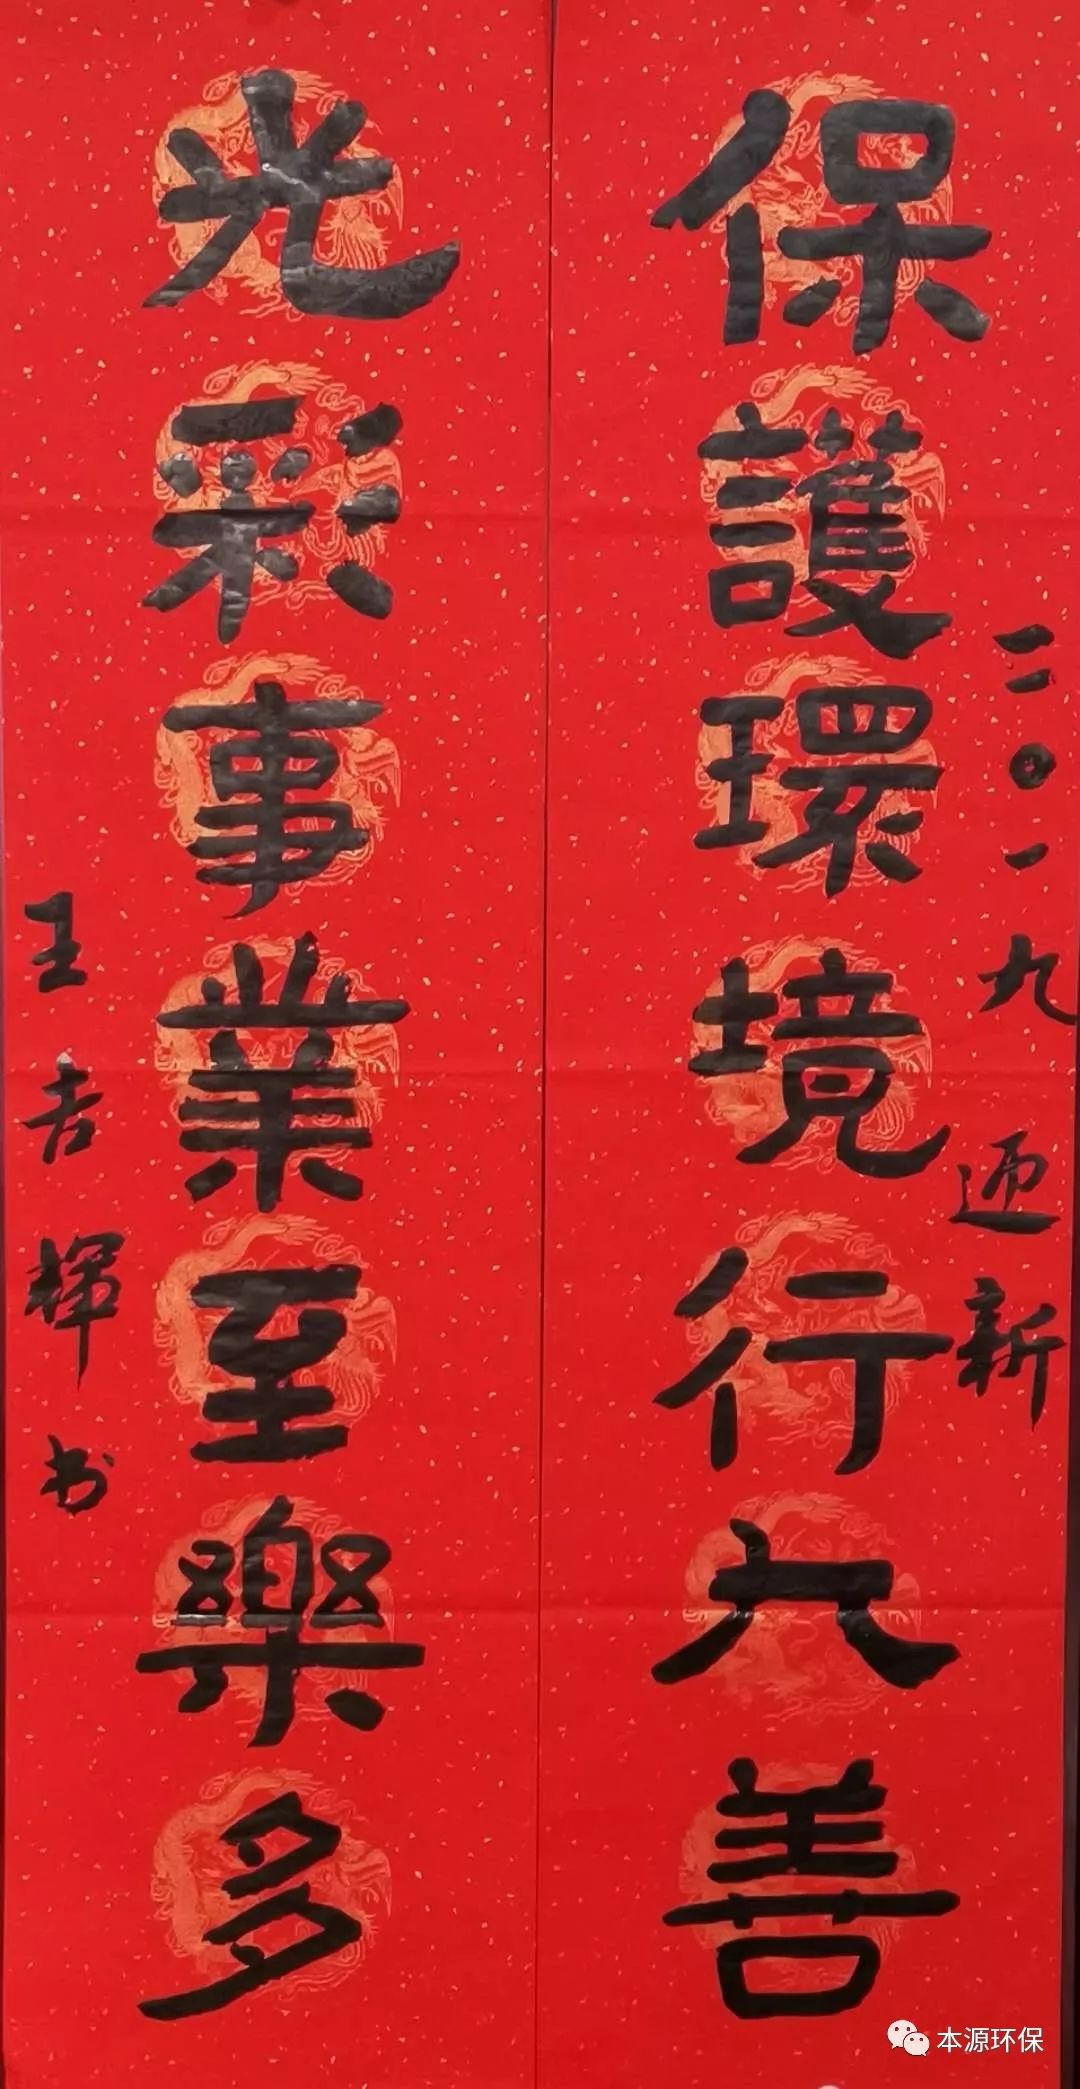 二〇一九迎新
保護環境行大善
光彩事業至樂多
王吉輝书
本源环保